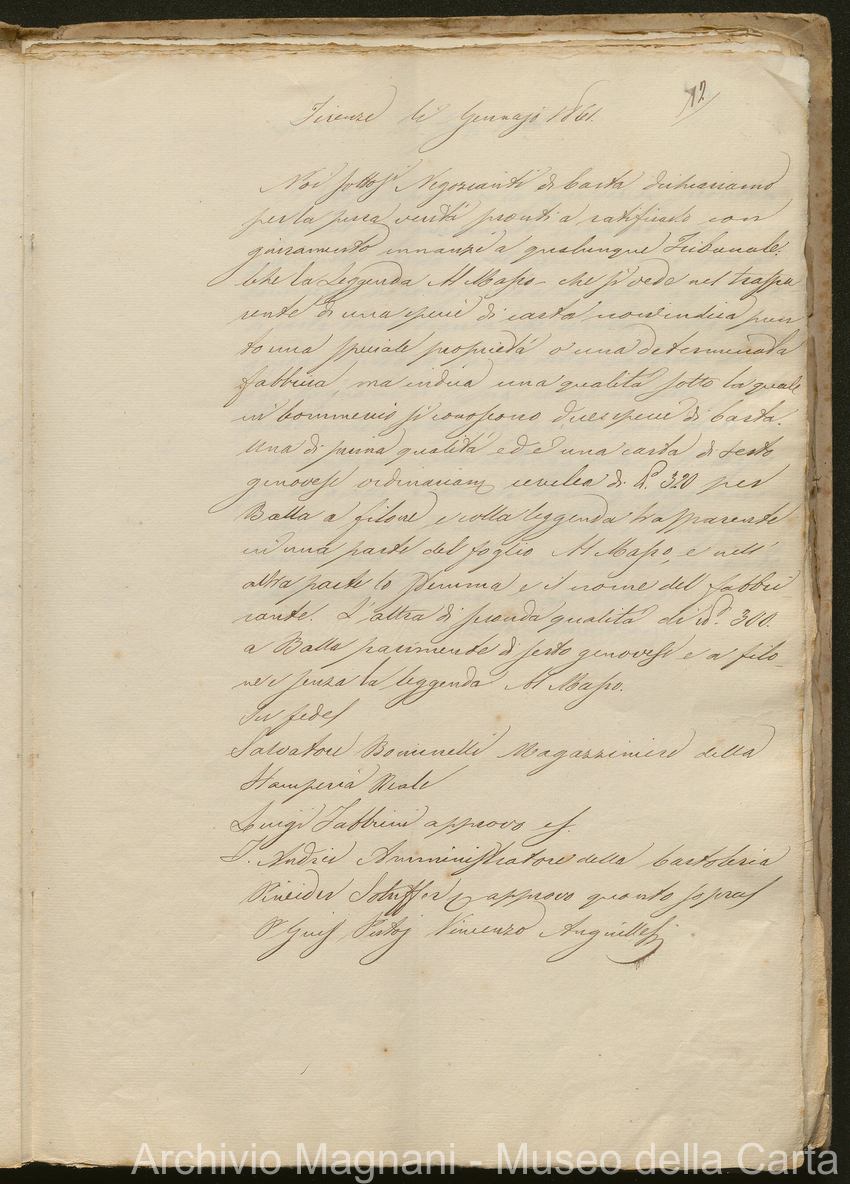 12
Firenze li Gennajo 1861.
Noi sottosi Negozianti di Carta dichiariamo
per la pura verità pronti a ratificarlo con
giuramento innanzi a qualunque Tribunale.
Che la Leggenda Al Masso che si vede nel traspa
rente di una specie di carta non indica pun
to una speciale proprietà o una determinata
fabbrica, ma indica una qualità sotto la quale
in Commercio si conoscono due specie di Carta.
Una di prima qualità ed è una carta di sesto
genovese ordinariam di 320 per
Balla a filone, e colla leggenda trasparente
in una parte del foglio Al Masso, e nell'
altra parte lo stemma e il nome del fabbri
cante. L'altra di seconda qualità di 300.
a Balla parimente di sesto genovese e a filo-
ne e senza la leggenda Al Masso.
In fede
Salvatore Magazziniere della
Stamperia Reale
Luigi Fabbrini approvo
Andrei Amministratore della Cartoleria
Pineider approvo quanto sopra
Vincenzo
Archivio Magnani - Museo della Carta